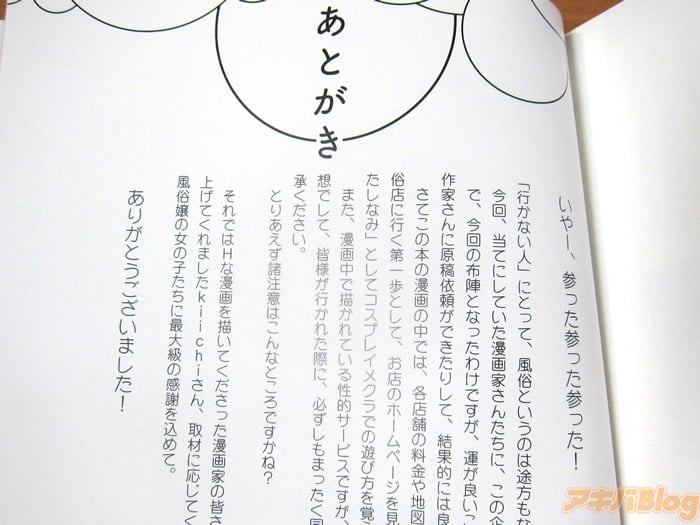 あとがき
いやー、参った参った参った！
「行かない人」にとって、風俗というのは途方もな
今回、当てにしていた漫画家さんたちに、この企
で、今回の布陣となったわけですが、運が良いこ
作家さんに原稿依頼ができたりして、結果的には良
さてこの本の漫画の中では、各店舗の料金や地図
俗店に行く第一歩として、お店のホームページを見
たしなみ」としてコスプレイメクラでの遊び方を覚え
また、漫画中で描かれている性的サービスですが、
想でして、皆様が行かれた際に、必ずしもまったく同
承ください。
とりあえず諸注意はこんなところですかね？
それではHな漫画を描いてくださった漫画家の皆さ
上げてくれましたkiichiさん、取材に応じてく
風俗嬢の女の子たちに最大級の感謝を込めて。
ありがとうございました！
アキバBlog